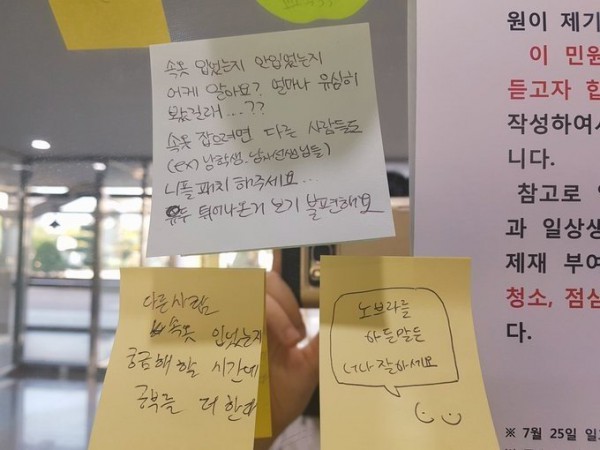 속옷 입었는지 안입었는지
어케 알아요? 얼마나 유심히
봤길래...??
속옷 잡으려면 다른 사람들도
(ex) 남학생. 남자선생님들)
니플패치 해주세요..
유두 튀어나온거 보기 불편해요
다른사람
속옷 입었는지
궁금해 할 시간에
공부를 더 한다
노브라를
하든말든
너나 잘하세요
원이 제기
이 민원
듣고자 합
작성하여
니다.
참고로
과 일상생
제재 부여
청소, 점심
다.
※ 7월 25일 일